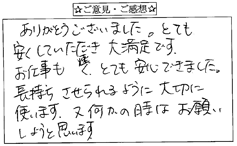 ☆ご意見・ご感想☆
ありがとうございました。とても
安くしていただき 大満足です。
お仕事も 速く、とても安心できました。
長持ち させられるように 大切に
使います。又何かの時は お願い
しようと思います